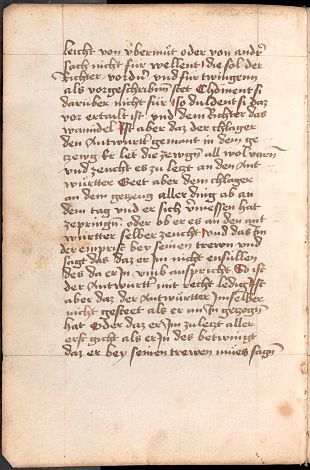 leicht von übermüt oder von andr̃
sach nicht für wellent die sol der
Richter vordrñ vnd für twingenn
als vorgeschribñ stet Chöment si
darüber nicht für so duldent si daz
vor ertailt ist vnd dem Richter das
wanndel Ist aber daz der chlager
den Antwurtt gemant in dem ge
czewg Er let die zewgñ all wol varñ
vnd zeucht es zu letzt an den Ant
württer Geet aber dem chlager
an dem geczeug aller ding ab an
dem tag vnd er sich vermessen hat
zepringñ oder ob er es an den ant
wurtter selber zeucht vnd das In
der emprist bey seinen trewn vnd
sagt das daz er Im nicht
des da er In vmb anspricht So ist
der Antwurtt mit recht ledig Ist
aber daz der Antwürtter Im selber
nicht gesteet als er an In geczogñ
hat Oder daz er Im zu letzt aller
erst gicht als er In des betwingt
daz er bey seinen trewen mües sagñ